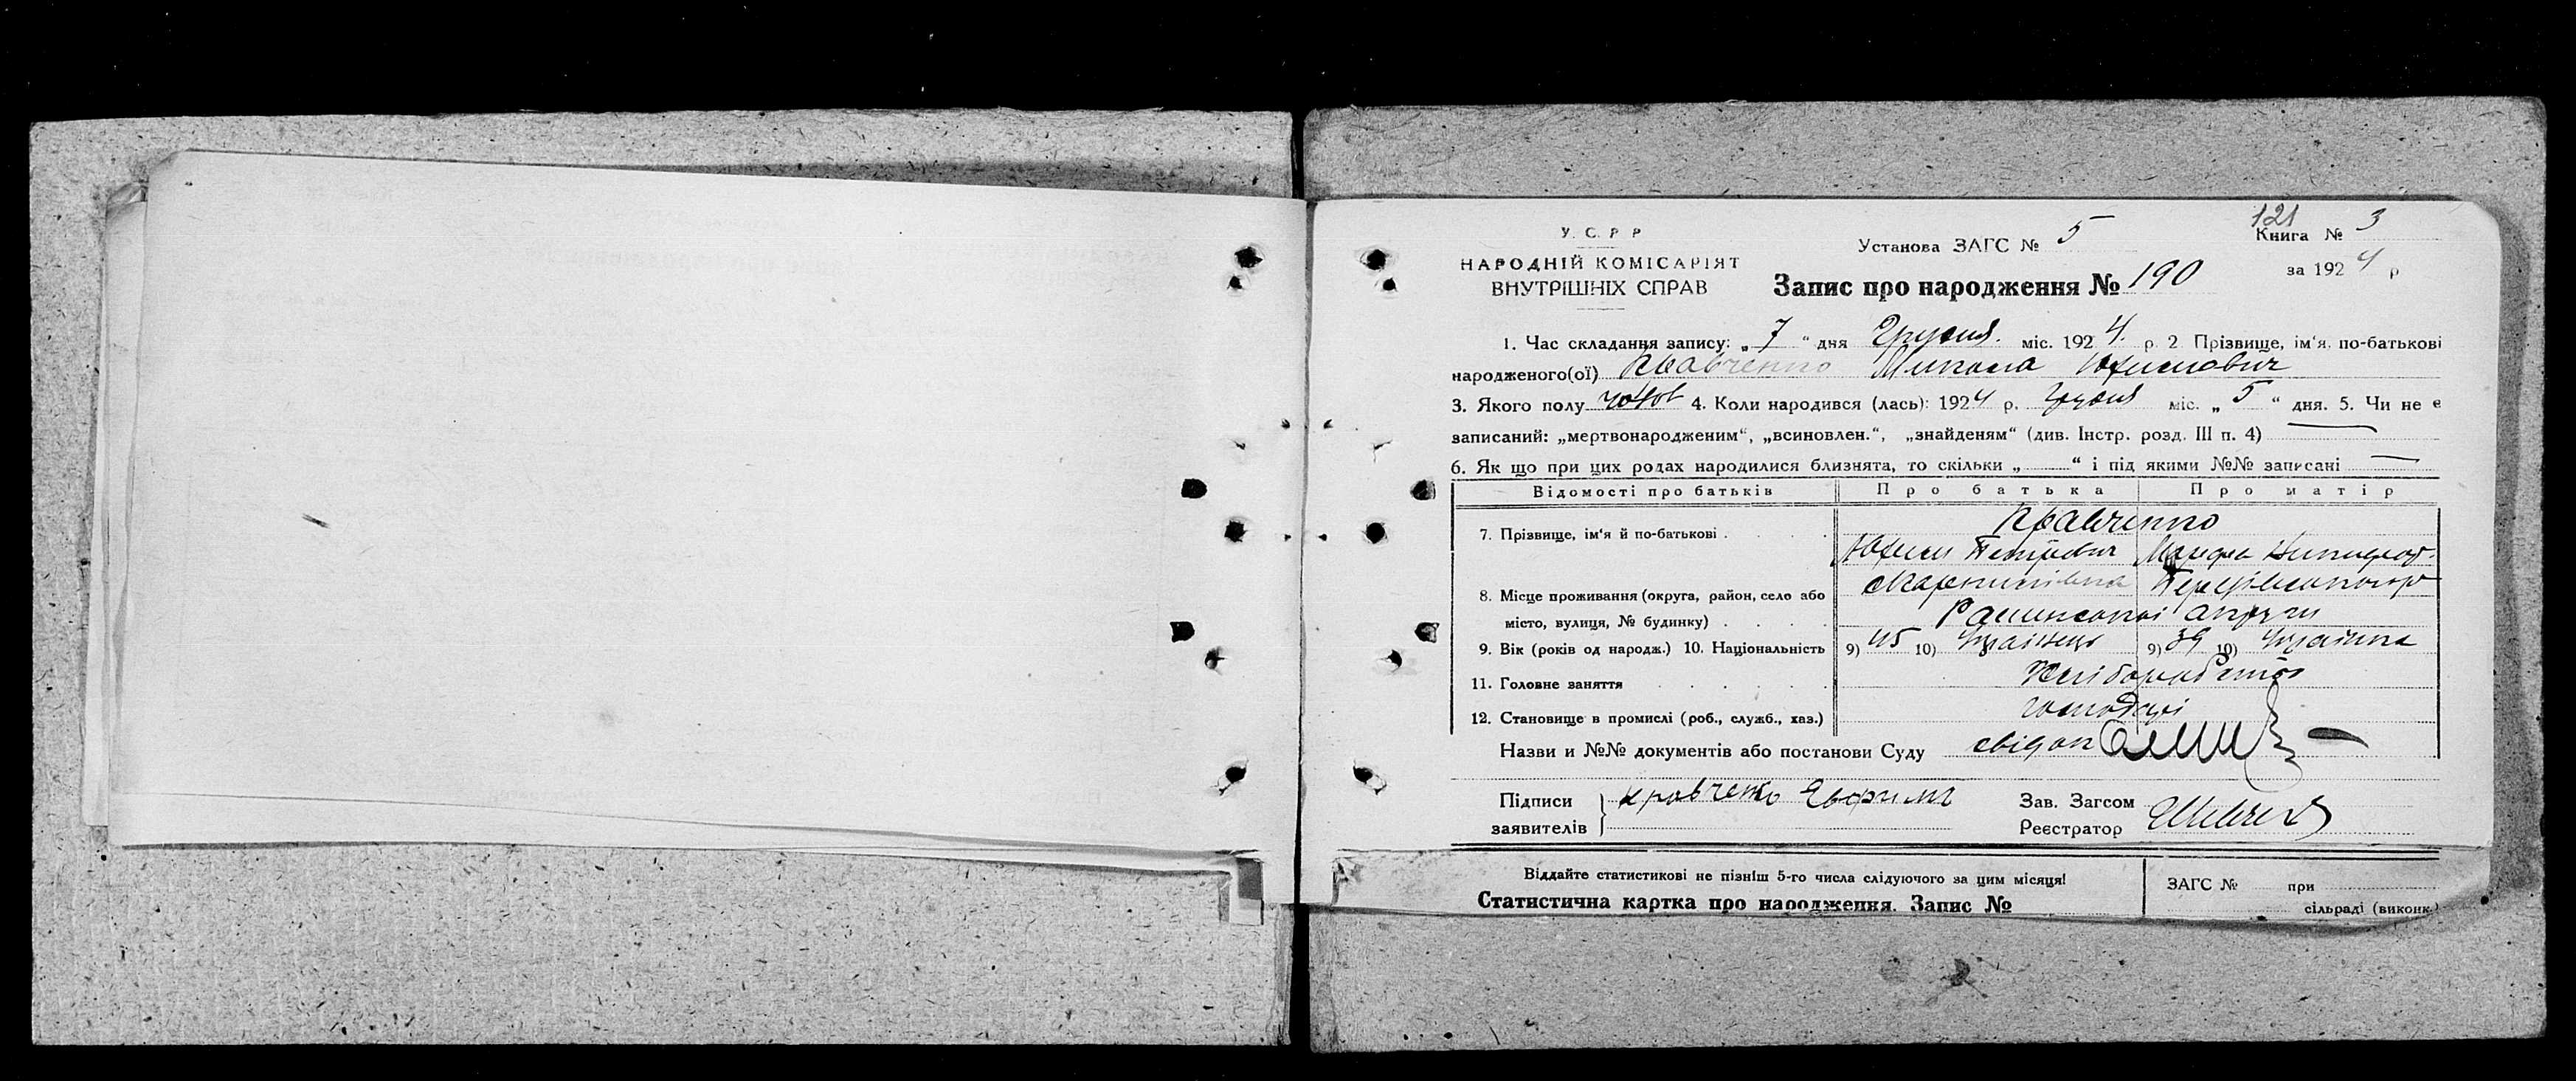 121
У. С. Р. Р
Установа ЗАГС № 5
Книга № 3
НАРОДНІЙ КОМІСАРІЯТ
ВНУТРІШНІХ СПРАВ
за 1924 р
Запис про народження № 190
1. Час складання запису: „7“ дня Грудня. міс. 1924. р. 2 Прізвище, ім‘я, по-батькові
народженого(ої) Кравченко Микола Юхимович
3. Якого полу чолов 4. Коли народився (лась): 1924 р. Грудня міс. „5“ дня. 5. Чи не є
записаний: „мертвонародженим“, „всиновлен.“, „знайденям“ (див. Інстр. розд. III п. 4) —
6. Як що при цих родах народилися близнята, то скільки „ “ і під якими №№ записані —
Відомості про батьків Про батька Про матір
Кравченко
7. Прізвище, ім‘я й по-батькові
Юхим Петрович
8. Місце проживання (округа, район, село або
місто, вулиця, № будинку) округи
9. Вік (років од народж.) 10. Національність 9) 45 10) Українець 9) 39 10) Українка
11. Головне заняття Хліборобство
12. Становище в промислі (роб., служб., хаз.) господарі
Назви и №№ документів або постанови Суду свідок
Підписи
заявителів Кравченко Ефримъ
Зав. Загсом
Реєстратор
Віддайте статистикові не пізніш 5-го числа слідуючого за цим місяця!
ЗАГС № при
Статистична картка про народження. Запис №
сільраді (виконк.)